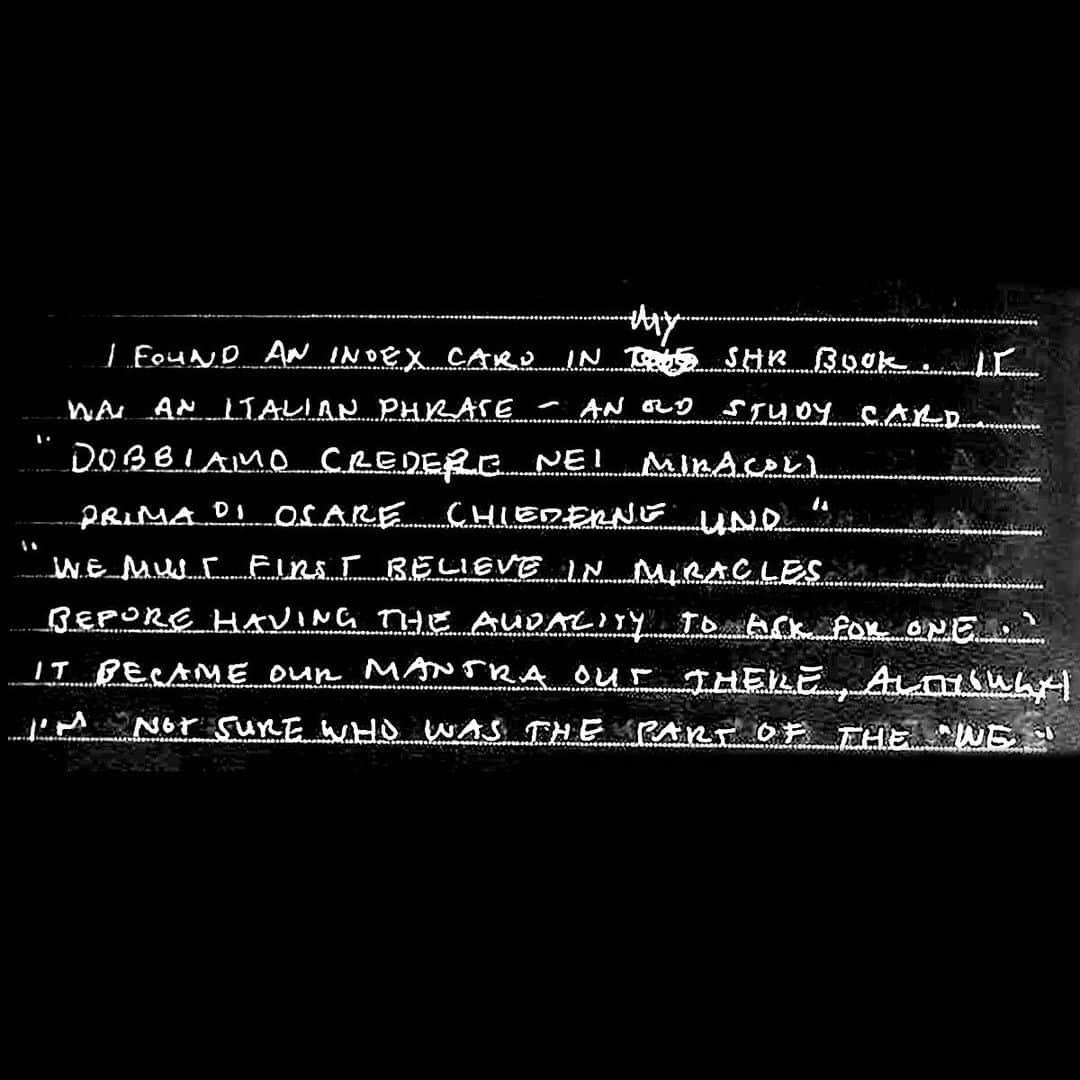 MY
I FOUND AN INDEX CARD IN SHR BOOK. IT
WAS AN ITALIAN PHRASE - AN OLD STUDY CARD.
"DOBBIAMO CREDERE NEI MIRACOLI
PRIMA DI OSARE CHIEDERNE UNO"
"WE MUST FIRST BELIEVE IN MIRACLES
BEFORE HAVING THE AUDACITY TO ASK FOR ONE."
IT BECAME OUR MANTRA OUT THERE, ALTHOUGH
I'M NOT SURE WHO WAS THE PART OF THE "WE"